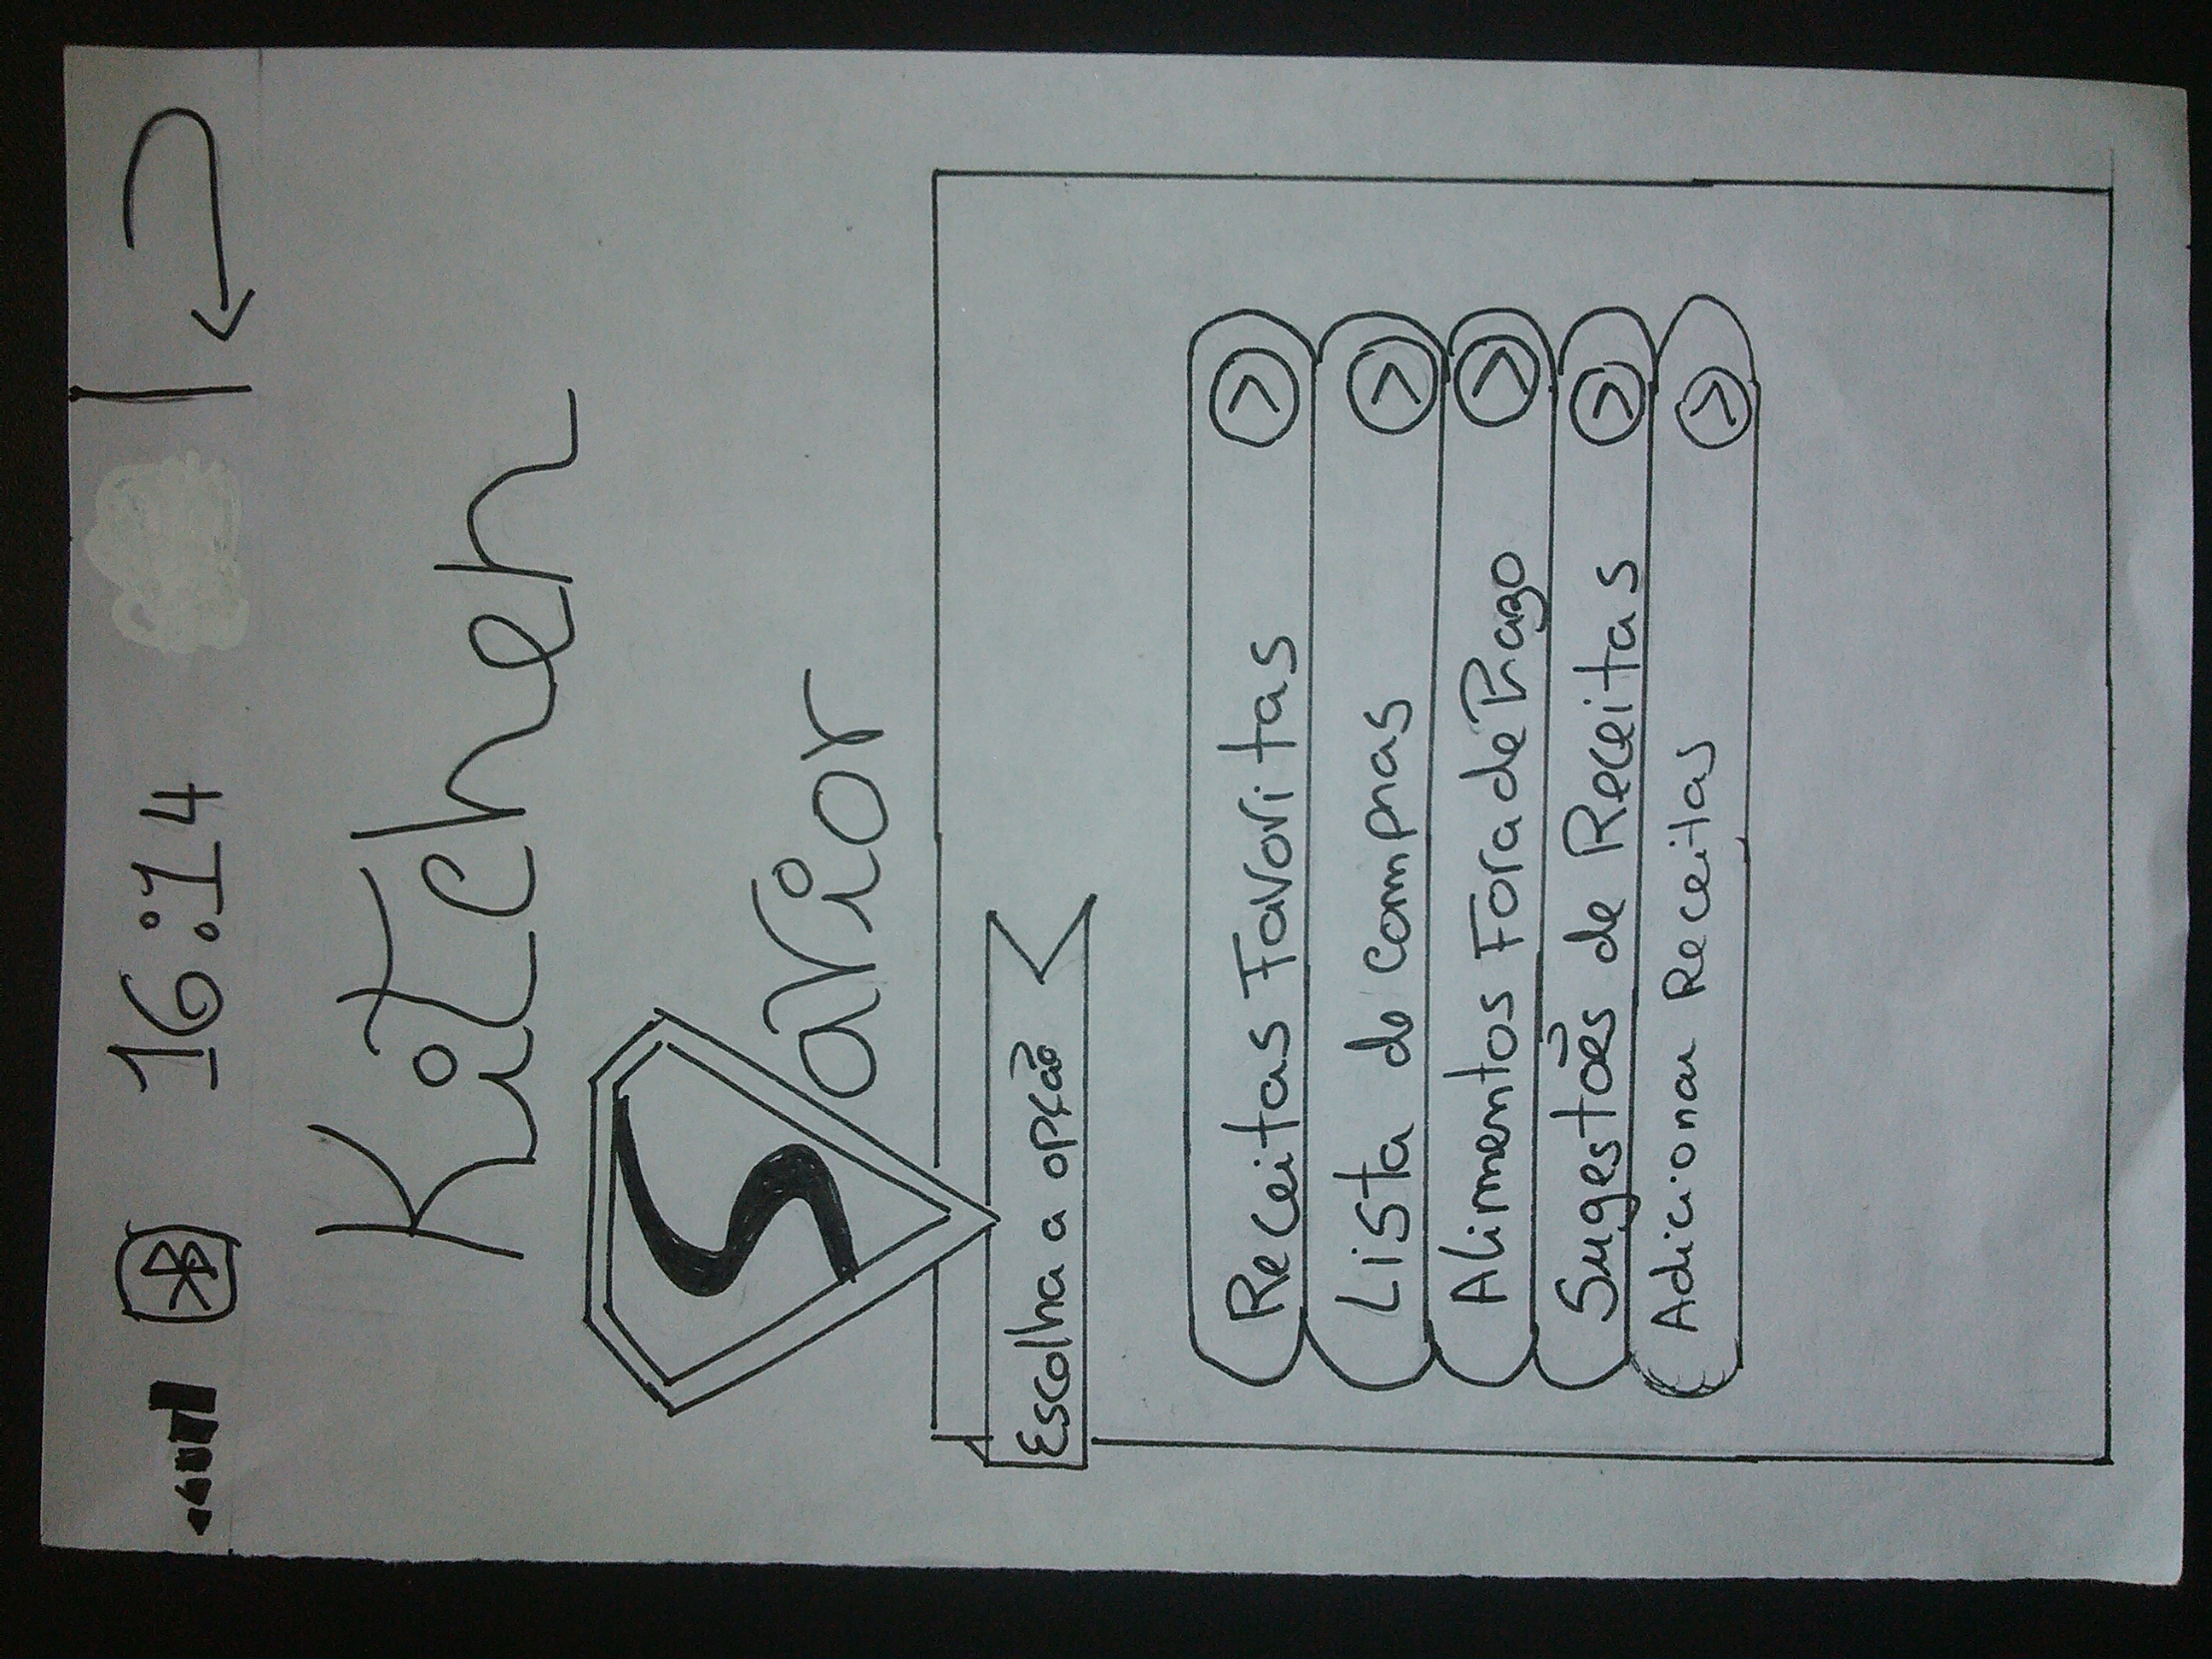 16:14
Kitchen
Savior
Escolha a opção
Receitas Favoritas
Lista de compras
Alimentos Fora de Prazo
Sugestões de Receitas
Adicionar Receitas